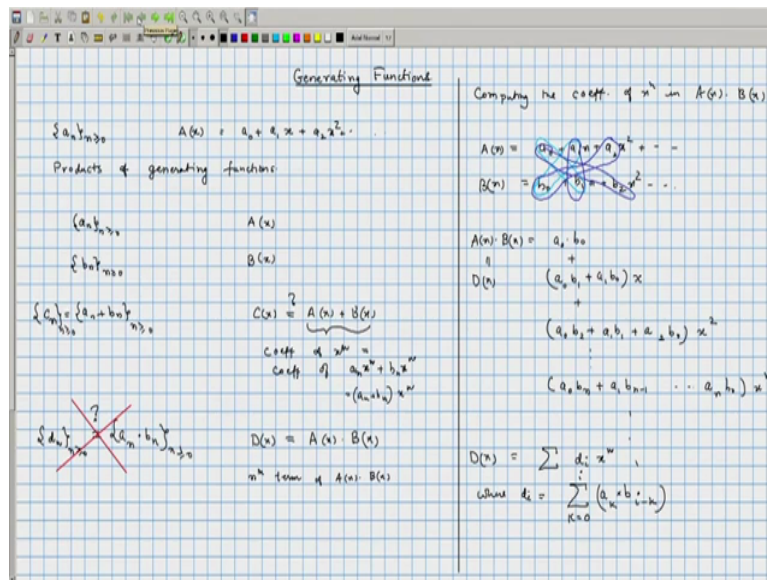 Generating Functions
{aₙ}ₙ≥₀ A(x) = a₀ + a₁ x + a₂ x² . . .
Products of generating functions
{aₙ}ₙ≥₀ A(x)
{bₙ}ₙ≥₀ B(x)
{cₙ}ₙ≥₀ = {aₙ + bₙ}ₙ≥₀ C(x) =? A(x) + B(x)
coeff of xⁿ =
coeff of aₙxⁿ + bₙxⁿ
= (aₙ + bₙ) xⁿ
{dₙ}ₙ≥₀ =? {aₙ · bₙ}ₙ≥₀ D(x) = A(x) · B(x)
nᵗʰ term of A(x) · B(x)
Computing the coeff. of xⁿ in A(x) · B(x)
A(x) = a₀ + a₁x + a₂x² + - -
B(x) = b₀ + b₁x + b₂x² - - -
A(x) · B(x) = a₀ · b₀
॥ +
D(x) (a₀b₁ + a₁b₀) x
+
(a₀b₂ + a₁b₁ + a₂b₀) x²
(a₀bₙ + a₁bₙ₋₁ . . . aₙb₀) xⁿ
D(x) = ∑ dᵢ xⁿ
where dᵢ = ∑ᵢ k=0 (aₖ × bᵢ₋ₖ)